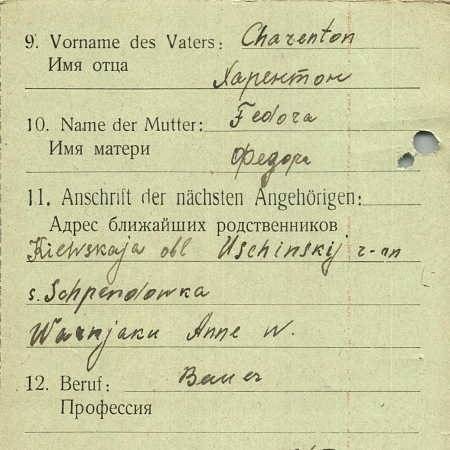 9. Vorname des Vaters: Charenton
Имя отца
Харентон
10. Name der Mutter: Fedora
Имя матери
Федора
11. Anschrift der nächsten Angehörigen:
Адрес ближайших родственников
Kiewskaja obl Uschinskij r-n
s. Schpendowka
Warnjaku Anne W.
12. Beruf: Bauer
Профессия